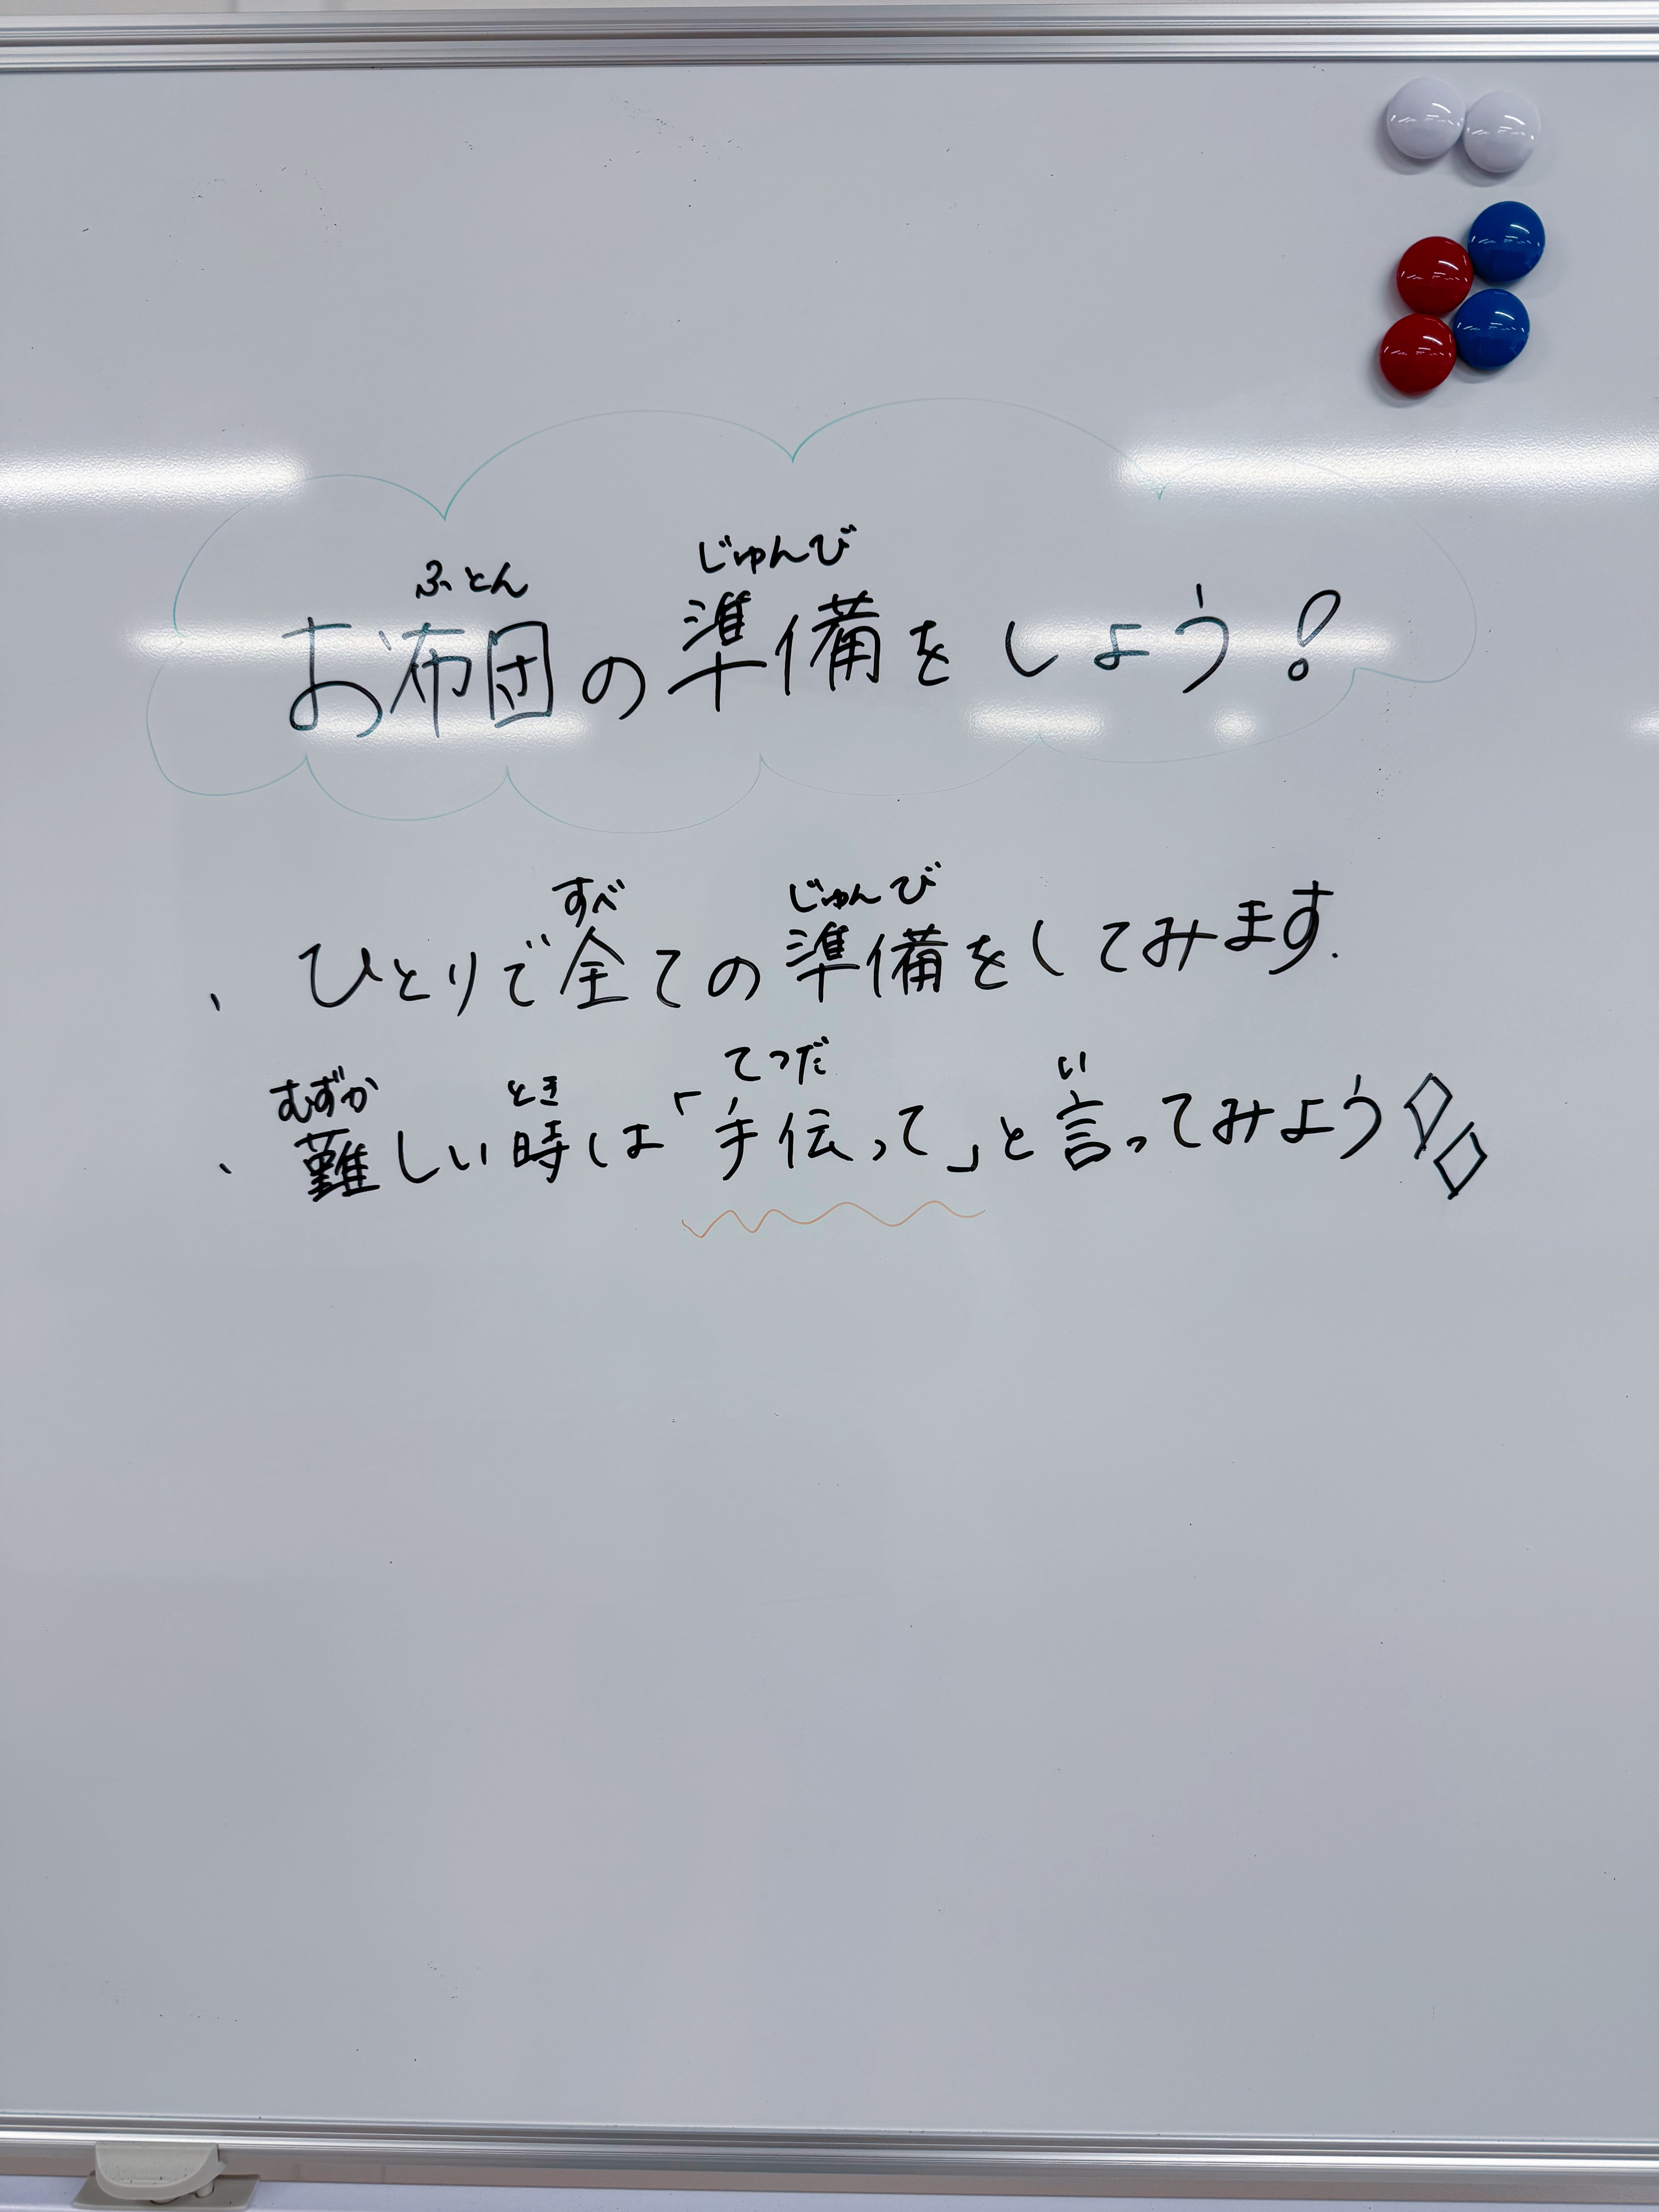 ふとん じゅんび
お布団の準備をしよう！
すべ じゅんび
、ひとりで全ての準備をしてみます.
むずか とき てつだ い
、難しい時は「手伝って」と言ってみよう